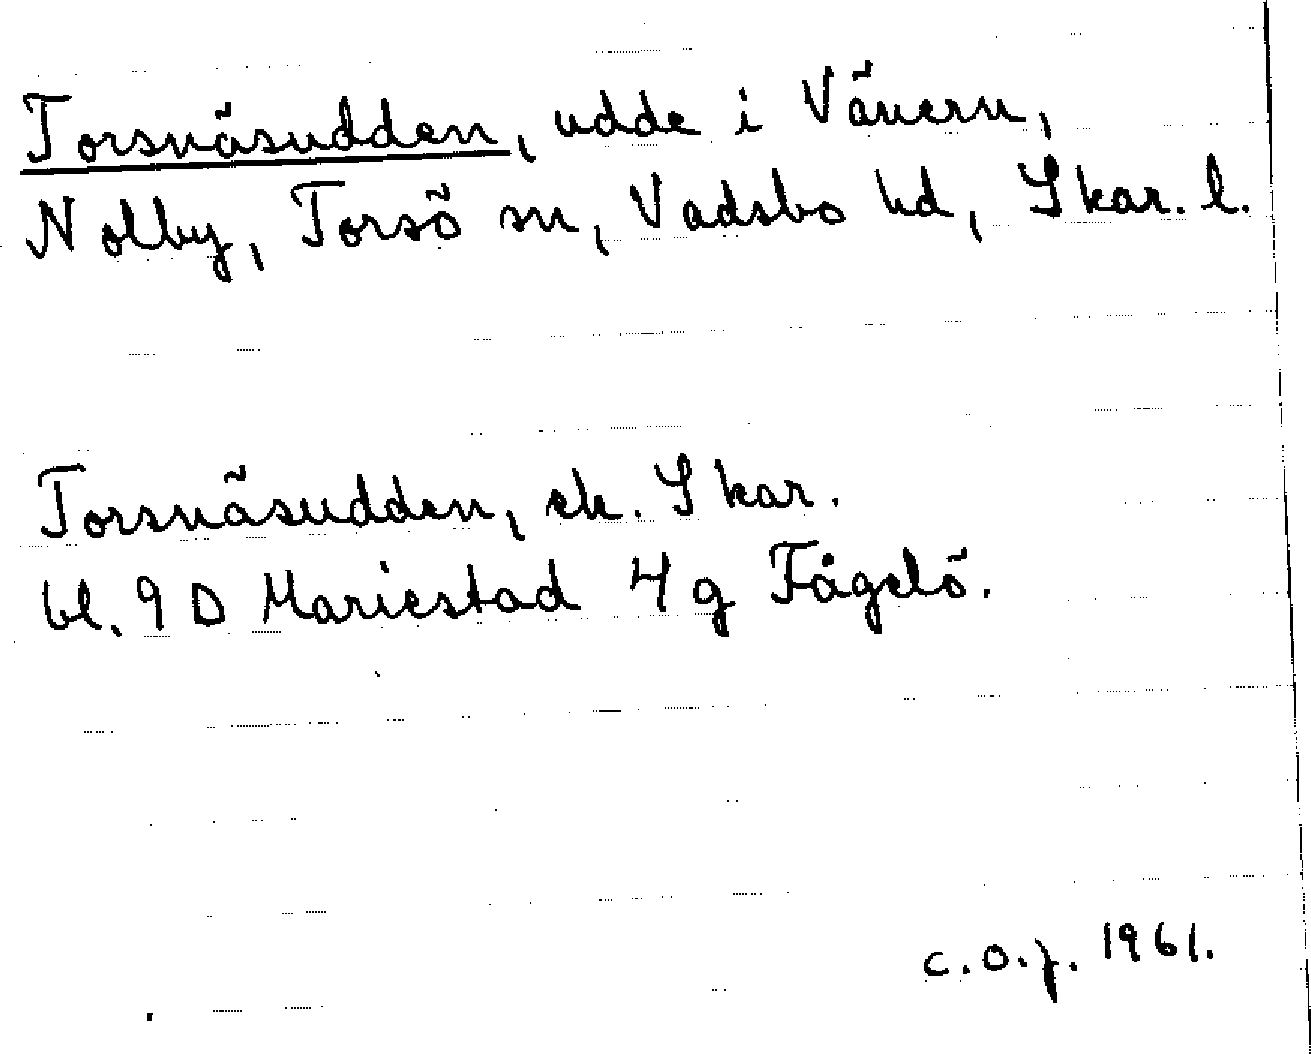 Torsnäsudden, udde i Vänern,
Nolby, Torsö sn, Vadsbo hd, Skar. l.
Torsnäsudden, ek. Skar.
bl. 9 D Mariestad 4 g Fågelö.
c.o.j. 1961.